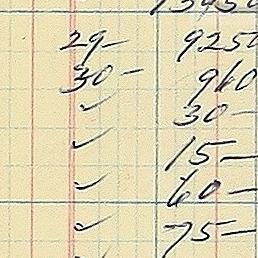 29- 9250
30- 910
✓ 30-
✓ 15-
✓ 60-
✓ 75-
✓